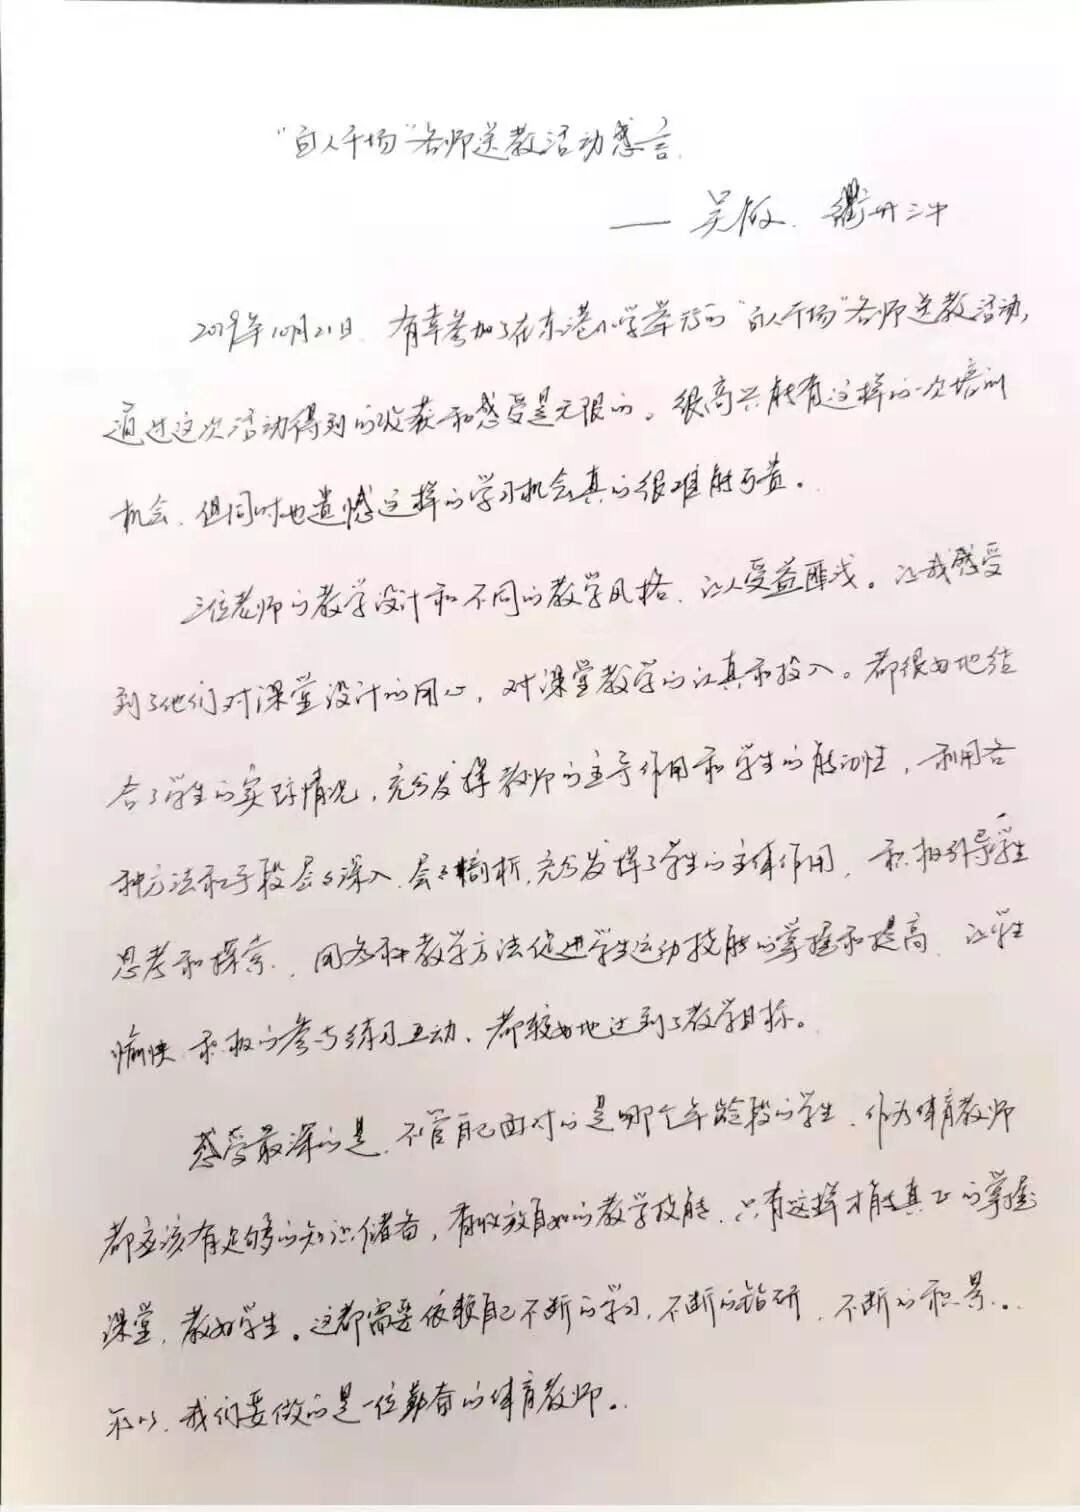 “百人千场”名师送教活动感言
—— 吴敏、衢州三中
2019年10月21日、有幸参加了在东港小学举行的“百人千场”名师送教活动，
通过这次活动得到的收获和感受是无限的。很高兴能有这样的一次培训
机会、但同时也遗憾这样的学习机会真的很难能可贵。
三位老师的教学设计和不同的教学风格、让人受益匪浅。让我感受
到了他们对课堂设计的用心，对课堂教学的认真和投入。都很好地结
合了学生的实际情况，充分发挥教师的主导作用和学生的能动性，利用各
种方法和手段层层深入、层层剖析，充分发挥了学生的主体作用，积极引导学生
思考和探索、用各种教学方法促进学生运动技能的掌握和提高、让学生
愉快、积极的参与练习互动、都较好地达到了教学目标。
感受最深的是、不管自己面对的是哪个年龄段的学生，作为体育教师
都应该有足够的知识储备，有收放自如的教学技能、只有这样才能真正的掌握
课堂，教好学生。这都需要依赖自己不断的学习，不断的钻研，不断的积累..
所以、我们要做的是一位勤奋的体育教师。